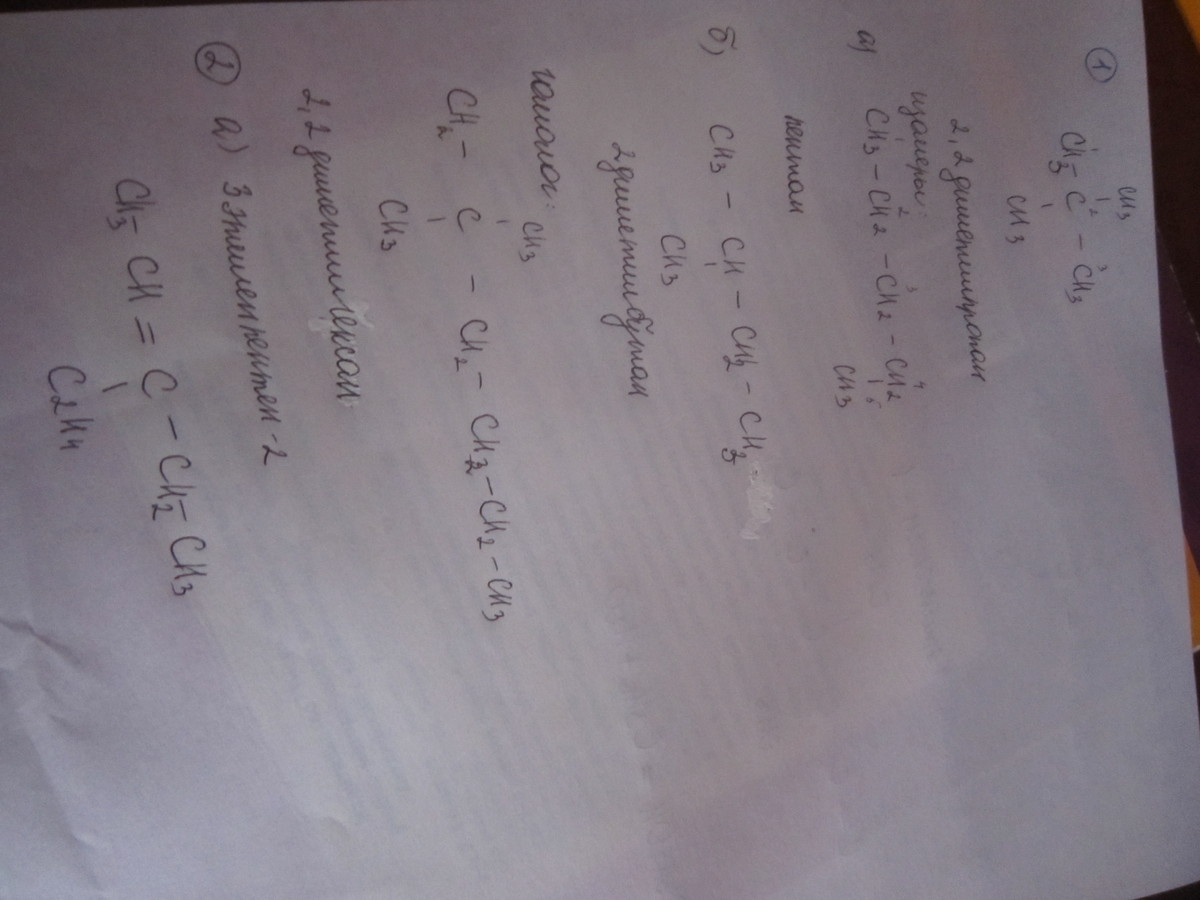 1
CH3
1 2 3
CH3 - C - CH3
CH3
2,2 диметилпропан
изомеры:
1 2 3 4
а) CH3 - CH2 - CH2 - CH2
5
CH3
пентан
б) CH3 - CH - CH2 - CH3
CH3
2 диметилбутан
гомолог:
CH3
CH2 - C - CH2 - CH2 - CH2 - CH3
CH3
2,2 диметилгексан
2 а) 3 этилпентен-2
CH3 - CH = C - CH2 - CH3
C2H4